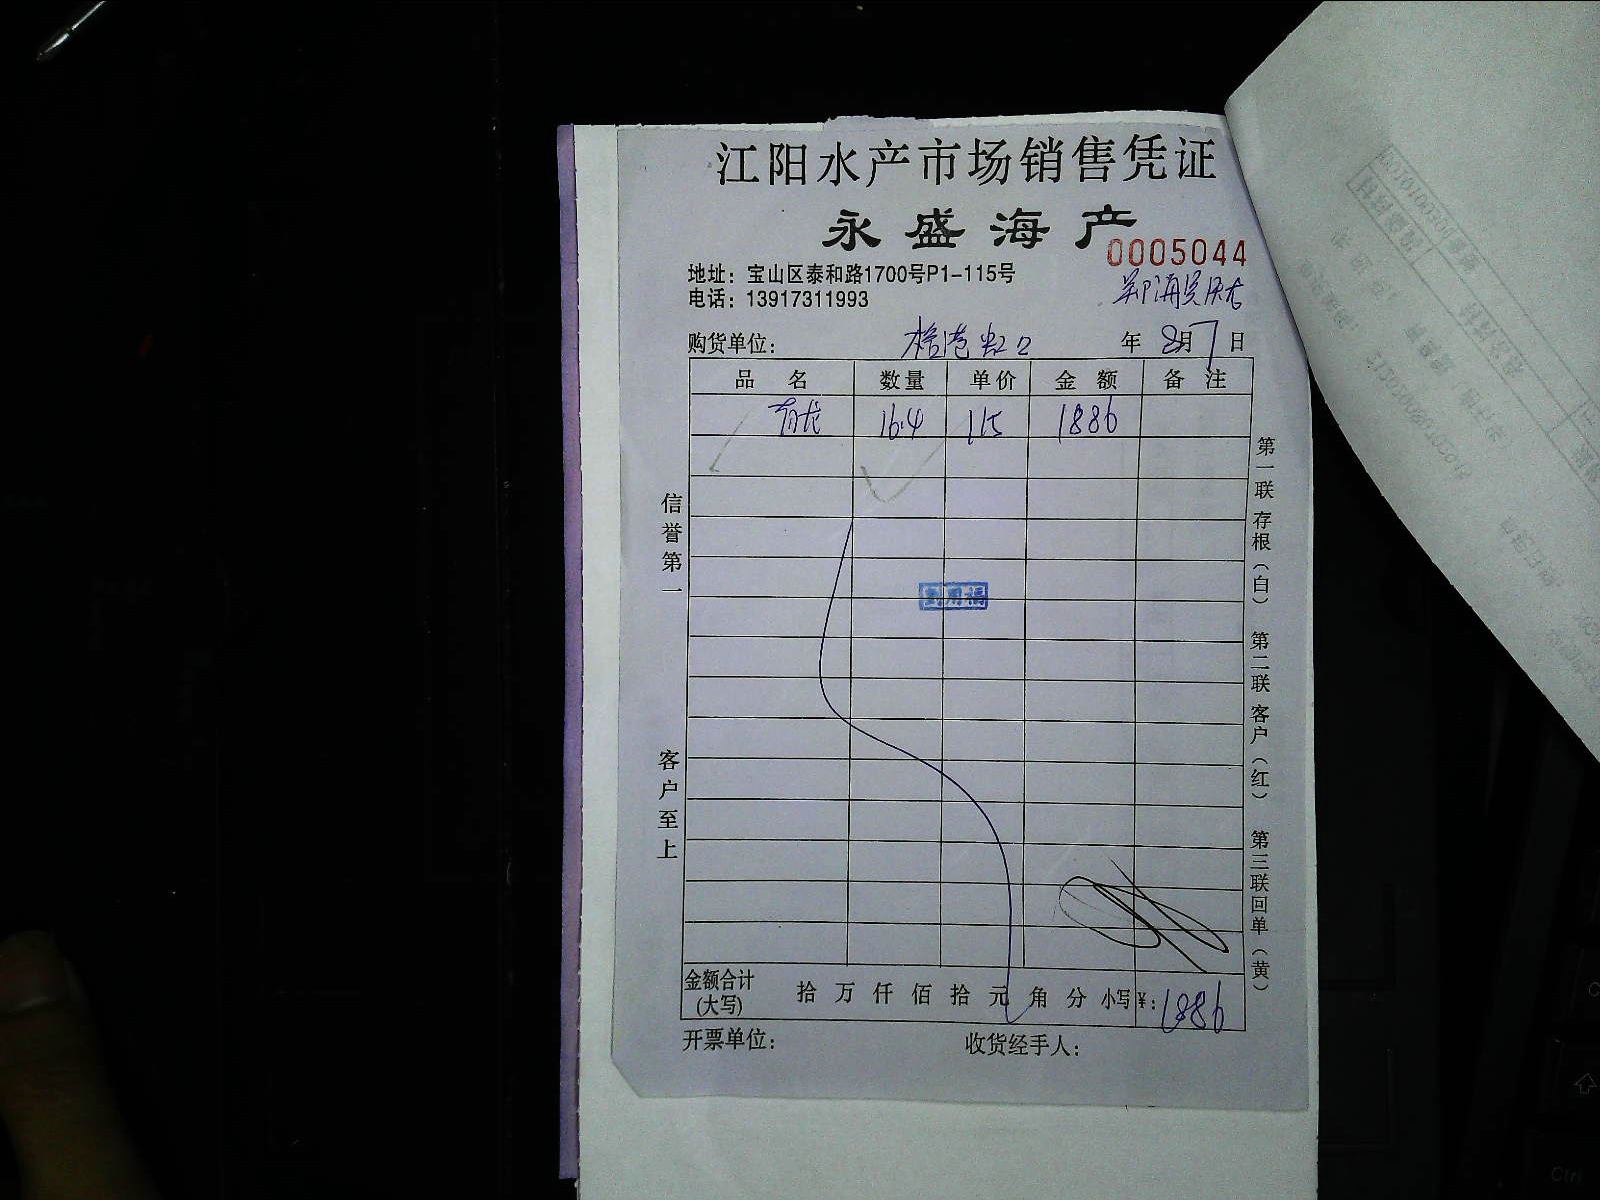 江阳水产市场销售凭证
永盛海产
0005044
地址：宝山区泰和路1700号P1-115号
电话：13917311993
购货单位： 年 8月7日
品名 数量 单价 金额 备注
青龙 16.4 115 1886
信誉第一
客户至上
第一联 存根（白） 第二联 客户（红） 第三联 回单（黄）
金额合计 拾 万 仟 佰 拾 元 角 分 小写¥：1886
(大写)
开票单位： 收货经手人：